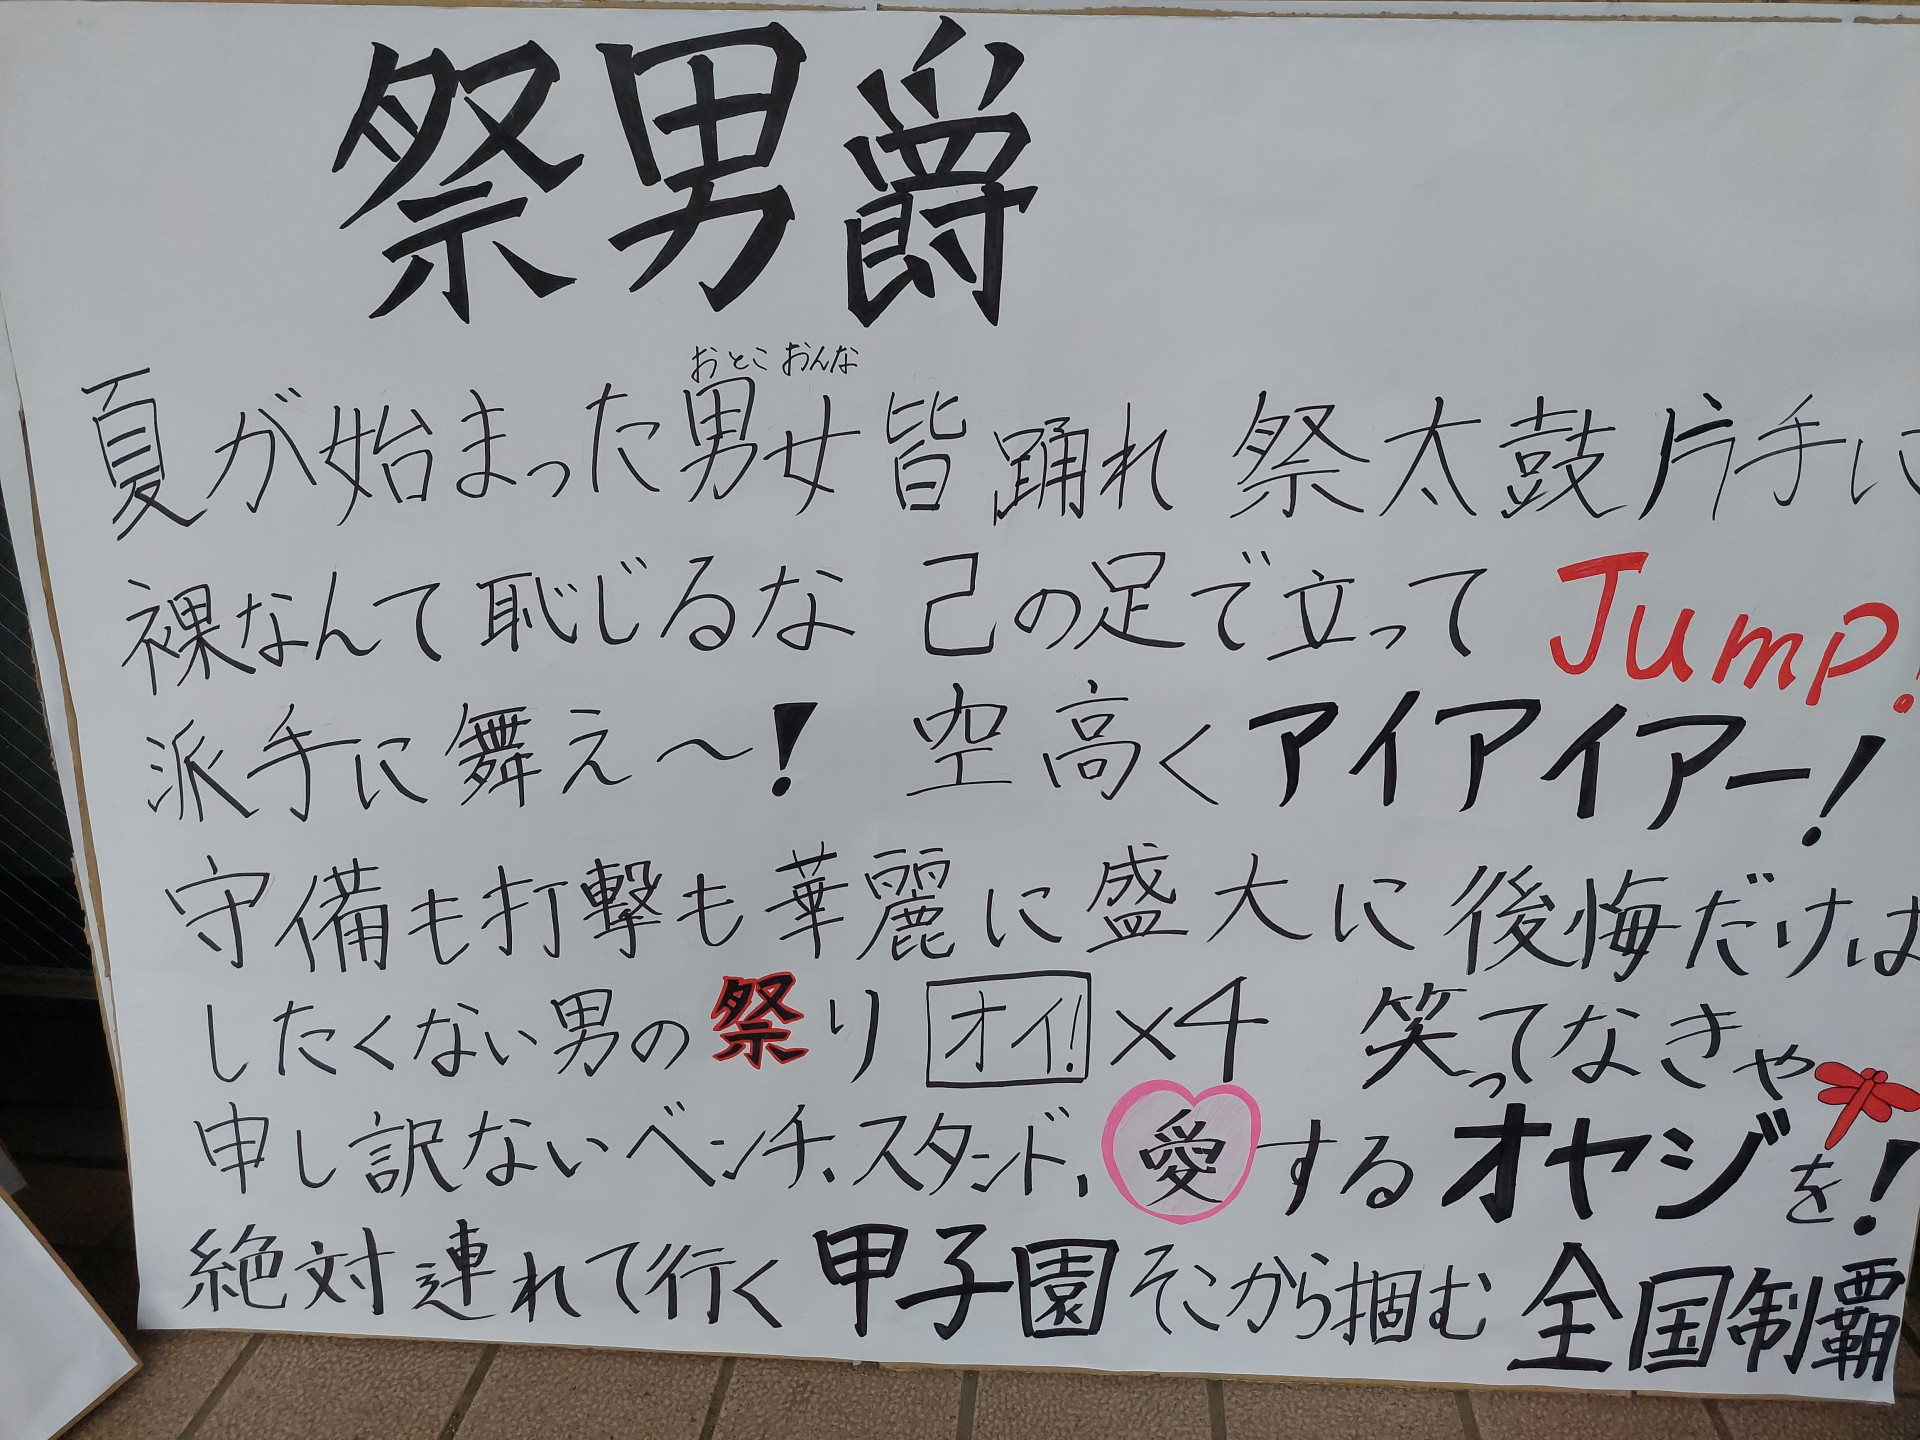 祭男爵
おとこ おんな
夏が始まった男女皆踊れ 祭太鼓片手に
裸なんて恥じるな 己の足で立って Jump!
派手に舞え〜! 空高くアイアイアー!
守備も打撃も華麗に盛大に後悔だけは
したくない男の祭り オイ! ×4 笑ってなきゃ
申し訳ないベンチ、スタンド、愛するオヤジを!
絶対連れて行く甲子園そこから掴む全国制覇